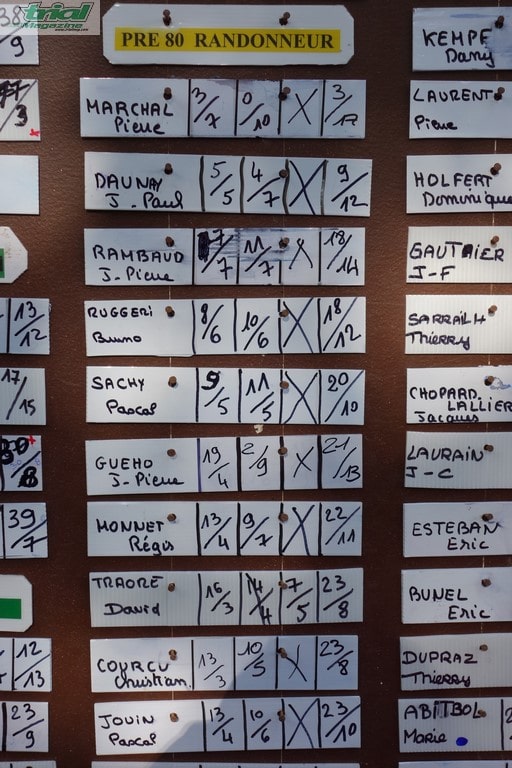 trial
Magazine
PRE 80 RANDONNEUR
38
9
MARCHAL
Pierre
3/7 0/10 X 3/17
3
DAUNAY
J. Paul
5/5 4/7 X 9/12
RAMBAUD
J-Pierre
7/7 11/7 X 18/14
RUGGERI
Bruno
8/6 10/6 X 18/12
13/12
SACHY
Pascal
9/5 11/5 X 20/10
17/15
GUEHO
J-Pierre
19/4 2/9 X 21/13
MONNET
Régis
13/4 9/7 X 22/11
39/7
TRAORE
David
16/3 14/4 7/5 23/8
COURCU
Christian
13/3 10/5 X 23/8
12/13
JOUIN
Pascal
13/4 10/6 X 23/10
23/9
KEMPF
Dany
LAURENT
Pierre
HOLFERT
Dominique
GAUTHIER
J-F
SARRAILH
Thierry
CHOPARD
LALLIER
Jacques
LAURAIN
J-C
ESTEBAN
Eric
BUNEL
Eric
DUPRAZ
Thierry
ABITBOL
Marie